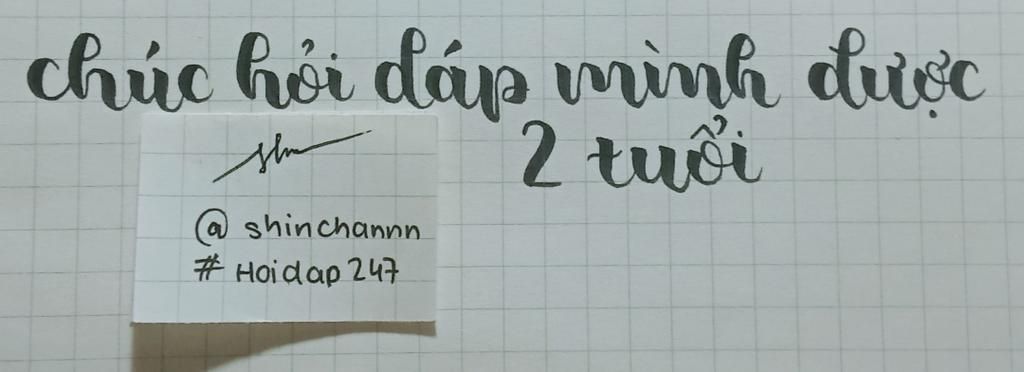 chúc hỏi đáp mình được
2 tuổi
shn
@shinchannn
#Hoidap247